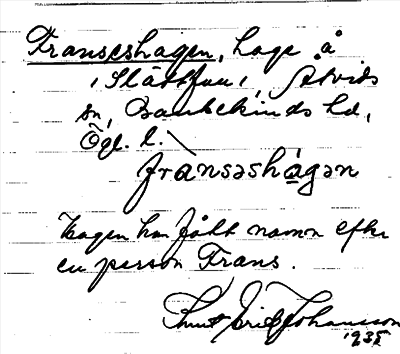 Franseshagen, hage å
Slättfall, Åtvids
sn, Bankekinds hd,
Ögl. l.
fránsəshàgən
Hagen har fått namn efter
en person Frans.
Knut Eric Johansson
1935